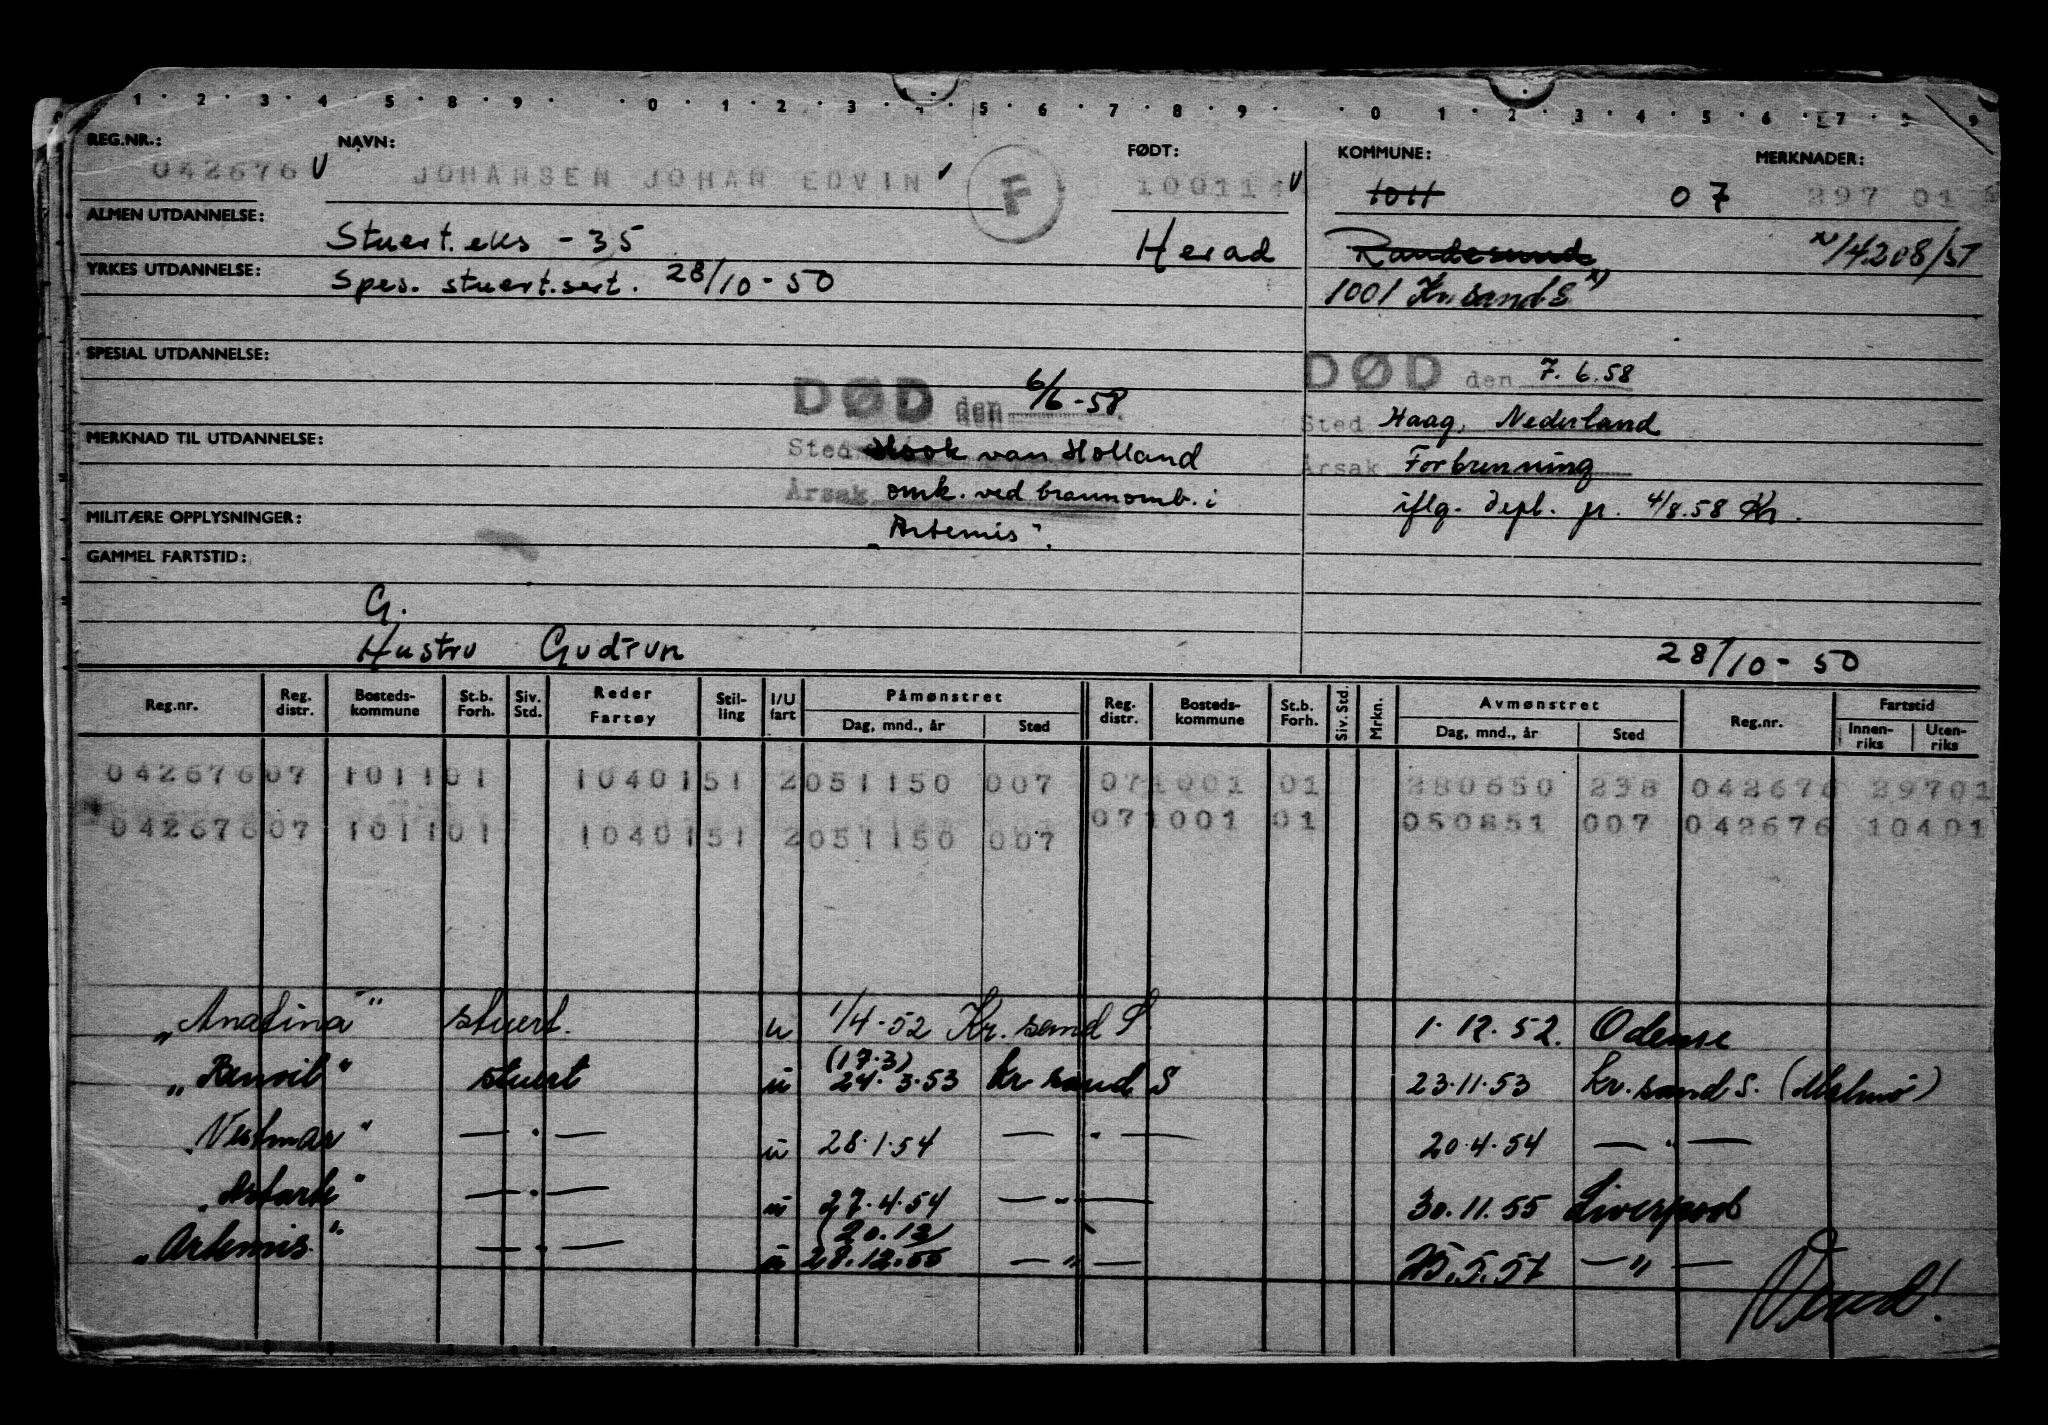 1 · 2 · 3 · 4 · 5 · 8 · 9 · · 0 · 1 · 2 · 3 · 4 · 5 · 6 · 7 · 8 · 9 · · 0 · 1 · 2 · 3 · 4 · 5 · 6 · 7 · 8 · 9
REG.NR.: NAVN: FØDT: KOMMUNE: MERKNADER:
042676 V JOHANSEN JOHAN EDVIN F 100114 V 1011 07 297 01
ALMEN UTDANNELSE: Stuert. eks - 35 Herad Randesund x) 14208/57
YRKES UTDANNELSE: Spes. stuert.sert. 28/10 - 50 1001 Kr.sand S x)
SPESIAL UTDANNELSE:
DØD den 6/6 - 58 DØD den 7. 6. 58
MERKNAD TIL UTDANNELSE: Sted Hook van Holland Sted Haag, Nederland
Årsak omk. ved brannomb. i Årsak Forbrenning
MILITÆRE OPPLYSNINGER: „Artemis". iflg. depl. pr. 4/8.58 Kr.
GAMMEL FARTSTID:
G.
Hustru Gudrun 28/10 - 50
Reg.nr. Reg. distr. Bosteds- kommune St.b. Forh. Siv. Std. Reder Fartøy Stil- ling I/U fart Påmønstret Dag, mnd., år Sted Reg. distr. Bosteds- kommune St.b. Forh. Siv. Std. Mrkn. Avmønstret Dag, mnd., år Sted Reg.nr. Fartstid Innen- riks Uten- riks
042676 07 1011 01 10401 51 2 051150 007 07 1001 01 280650 238 042676 29701
042676 07 1011 01 10401 51 2 051150 007 07 1001 01 050851 007 042676 10401
„Anatina" stuert. u 1/4 - 52 Kr. sand S. 1. 12. 52. Odense
(17.3)
„Benoil" stuert u 24. 3. 53 Kr sand S 23. 11. 53 Kr. sand S. (Malmö)
„Vestmar" — " — u 28. 1. 54 — " — 20. 4. 54 — " —
„Astark" — " — u 27. 4. 54 — " — 30. 11. 55 Liverpool
(20. 12)
„Artemis" — " — u 28. 12. 55 — " — 25. 5. 57 — " —
Vend!